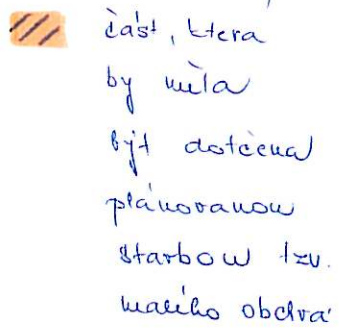 část, která
by měla
být dotčena
plánovanou
stavbou tzv.
malého obchva